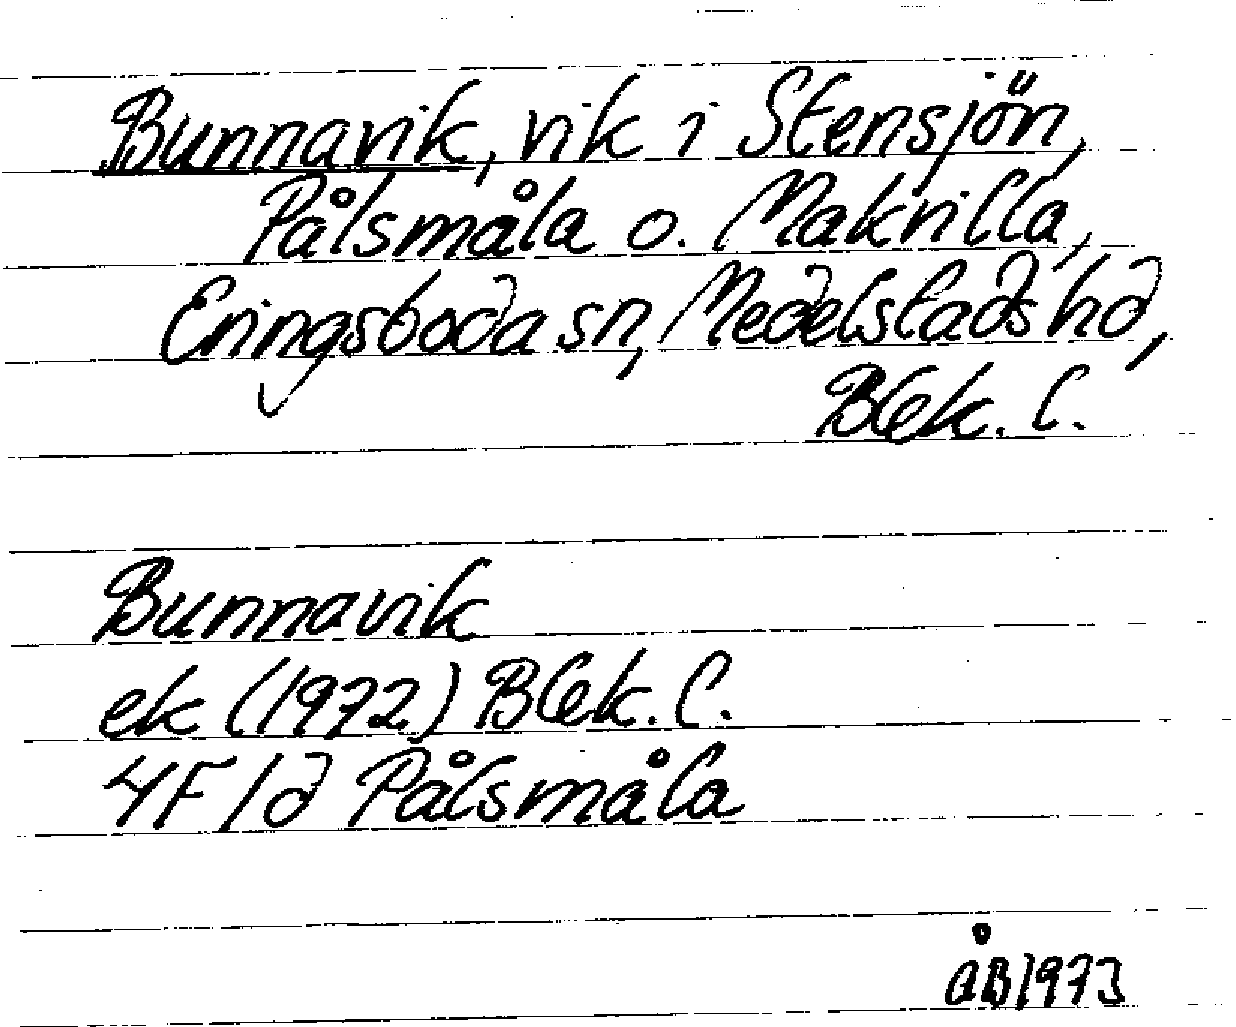 Bunnavik, vik i Stensjön,
Pålsmåla o. Makrilla,
Eringsboda sn, Medelstads hd,
Blek. l.
Bunnavik
ek (1972) Blek. l.
4F/d Pålsmåla
ÅB 1973